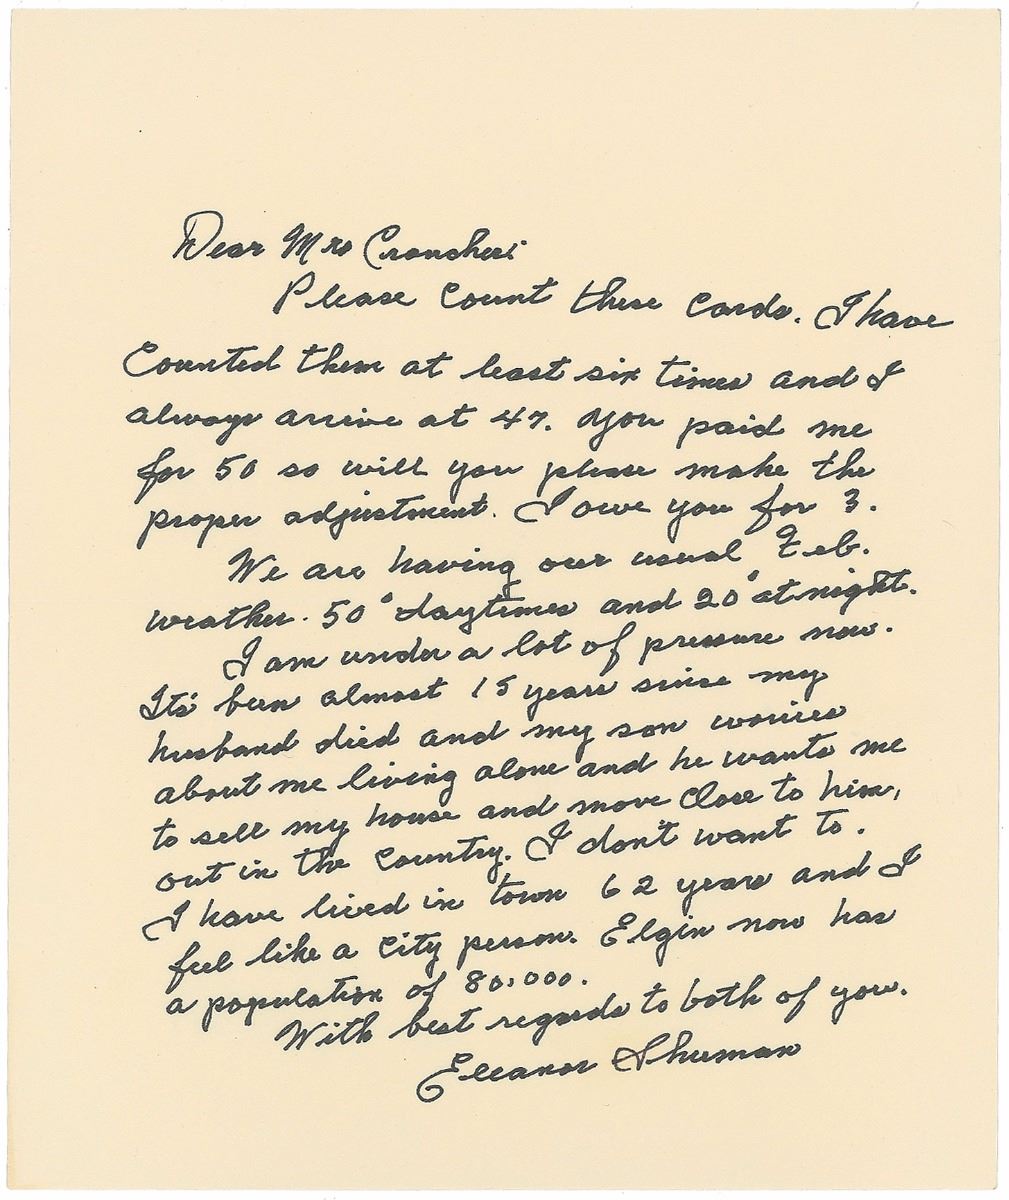 Dear Mrs Croucher:
Please count these cards. I have
counted them at least six times and I
always arrive at 47. You paid me
for 50 so will you please make the
proper adjustment. I owe you for 3.
We are having our usual Feb.
weather. 50° daytimes and 20° at night.
I am under a lot of pressure now.
Its' been almost 15 years since my
husband died and my son worries
about me living alone and he wants me
to sell my house and move close to him,
out in the country. I don't want to.
I have lived in town 62 years and I
feel like a city person. Elgin now has
a population of 80,000.
With best regards to both of you.
Eleanor Shuman